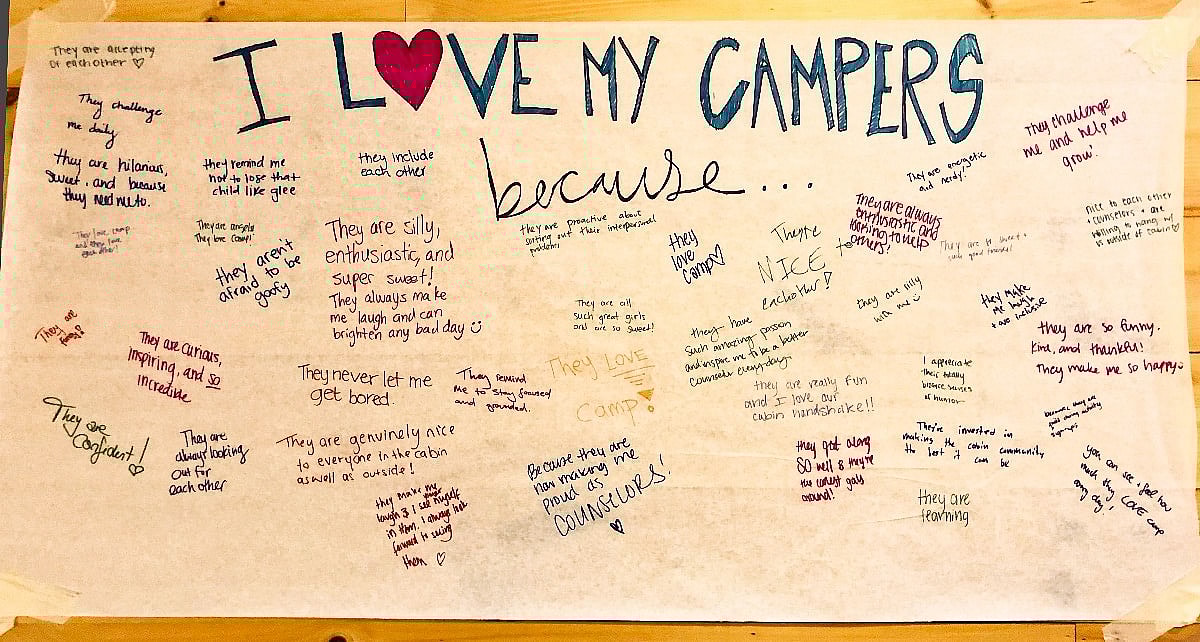 I LOVE MY CAMPERS
because...
They are accepting
of each other ♡
They challenge
me daily
they are hilarious,
sweet, and because
they need me to.
they remind me
not to lose that
child like glee
they include
each other
They love camp
and they love
each other!
They are angels
They love camp!
they aren't
afraid to be
goofy
They are silly,
enthusiastic, and
super sweet!
They always make
me laugh and can
brighten any bad day ☺
they are proactive about
sorting out their interpersonal
problems
they
love
camp♡
They're
NICE
eachother!
to
They are always
enthusiastic and
looking to help
others!
They are energetic
and nerdy!
They challenge
me and help me
grow!
nice to each other
+ counselors + are
willing to hang w/
us outside of cabin♡
They are so sweet +
such good friends!
They are
funny!
They are curious,
inspiring, and so
incredible
They never let me
get bored.
They remind
me to stay focused
and grounded.
They are all
such great girls
and are so sweet!
They LOVE
Camp!
they have
such amazing passion
and inspire me to be a better
counselor everyday.
they are silly
with me ☺
they make
me laugh
+ are inclusive
they are so funny,
kind, and thankful!
They make me so happy☺
they are really fun
and I love our
cabin handshake!!
I appreciate
their totally
bizarre senses
of humor
because they are
during activity
They are
Confident!
♡
They are
always looking
out for
each other
They are genuinely nice
to everyone in the cabin
as well as outside!
they make me
laugh & I see myself
in them. I always look
forward to seeing
them ♡
Because they are
now making me
proud as
COUNSELORS!
♥
they get along
SO well & they're
the cutest gals
around!
They're invested in
making the cabin community
the best it can be
they are
learning
you can see & feel how
much they LOVE camp
any day!